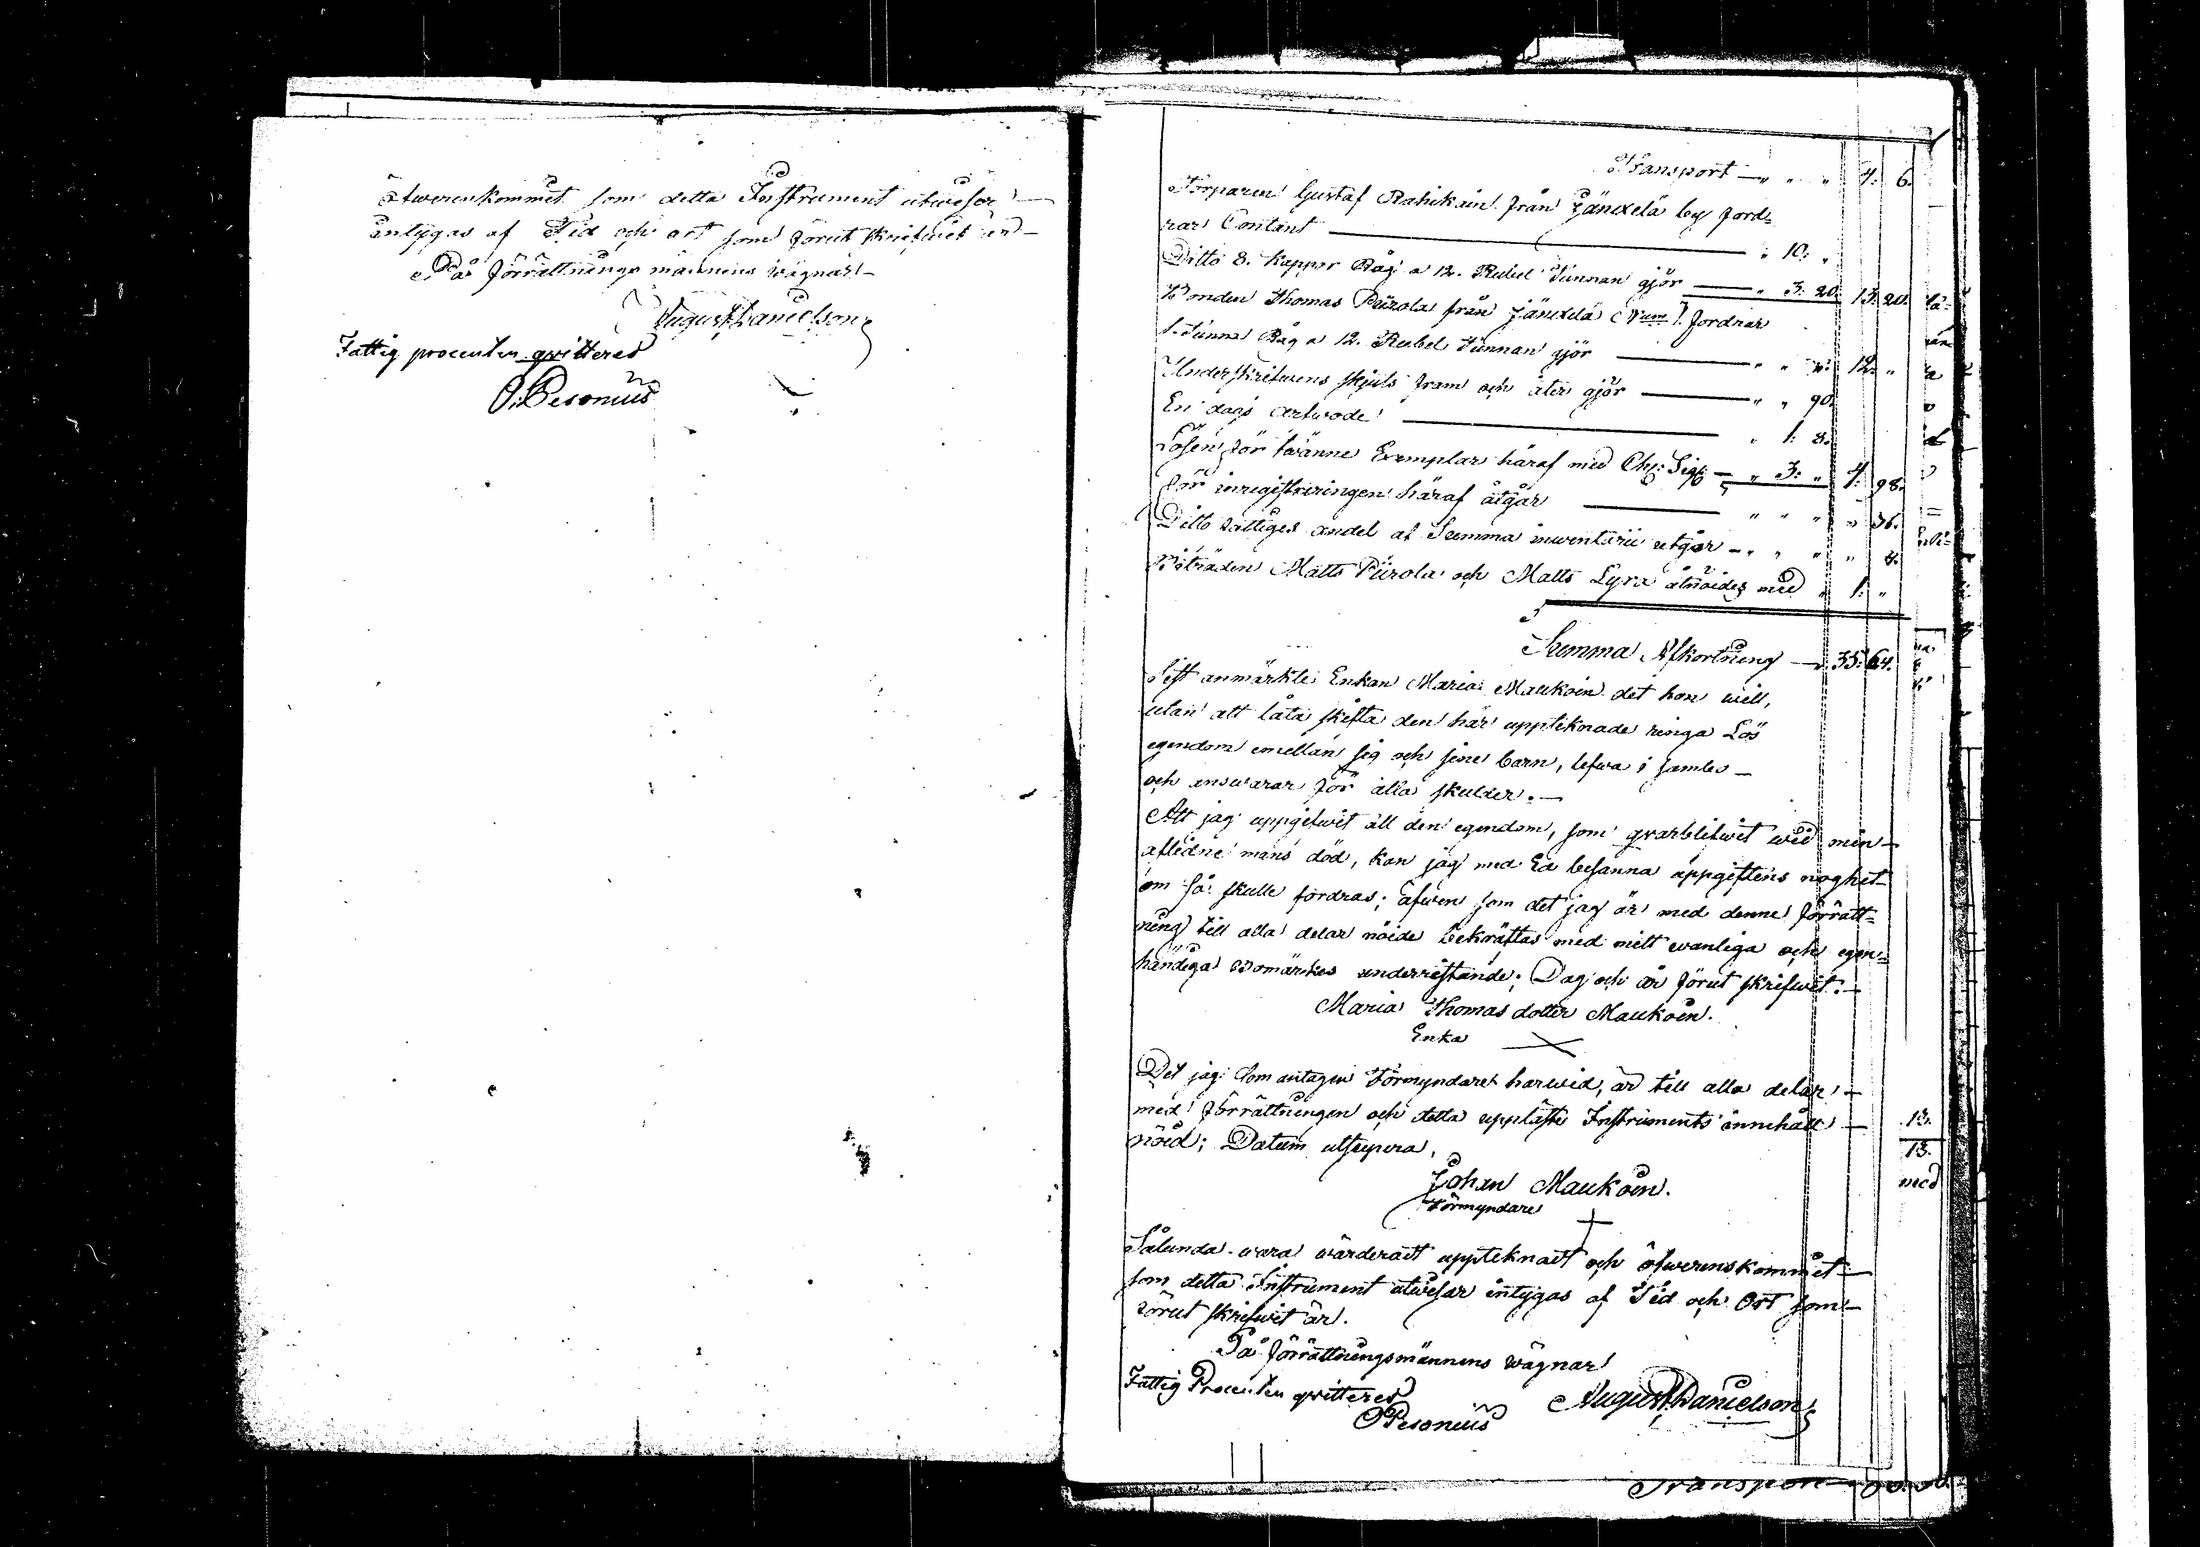 öfwerenkommit som detta Instrument utwisar —
intygas af Tid och ort som förut skrifwit är —
På förrättnings männens wägnar —
August Danielson
Fattig procenten qvitteras
O. Pesonius
Transport — " " " 4. 6.
Torparen Gustaf Rahikain från Jändelä by ford=
rar Contant — " 10: "
Ditto 8. kappor Råg a 12. Rubel Tunnan gjör — " 3: 20. 13. 20.
Bonden Thomas Piirola från Jändelä fordrar
1. Tunna Råg a 12. Rubel Tunnan gjör — " " " 12. "
Underskrifwens skjuts fram och åter gjör — " " 90.
En dags arfwode — " 1: 8.
Lösen för twänne Exemplar häraf med Ch: Sig: — " 3: " 4. 98.
För inregistreringen häraf åtgår — " " " " 36.
Ditto Fattiges andel af Summa inventarii utgör — " " " " 4.
Biträden Matts Piirola och Matts Lyra åtnöides med " 1. "
Summa Afkortning — 35. 64.
Sist anmärkte Enkan Maria Maukoin det hon will,
utan att låta skifta den här uppteknade ringa Lös
egendom emellan sig och sine barn, lefwa i samlen —
och answarar för alla skulder. —
Att jag uppgifwit all den egendom, som qvarblifwit wid min —
afledne mans död, kan jag med Ed besanna uppgiftens noghet
om så skulle fordras; äfwen som det jag är med denne förrätt=
ning till alla delar nöide bekräftas med mitt wanliga och egen=
händiga Bomärkes underristande; Dag och år förut skrifwit. —
Maria Thomas dotter Maukoin.
Enka
Det jag som antagen Förmyndare harwid, är till alla delar —
med förrättningen och detta uppläste Instruments innehåll —
nöid; Datum utsupera,
Johan Maukoin.
Förmyndare
13.
13.
med
Sålunda wara wärderadt uppteknadt och öfwerenskommit —
som detta Instrument utwisar intygas af Tid och Ort som —
förut skrifwit är.
På förrättningsmännens wägnar
August Danielson
Fattig Procenten qvitteras
O Pesonius
Transport